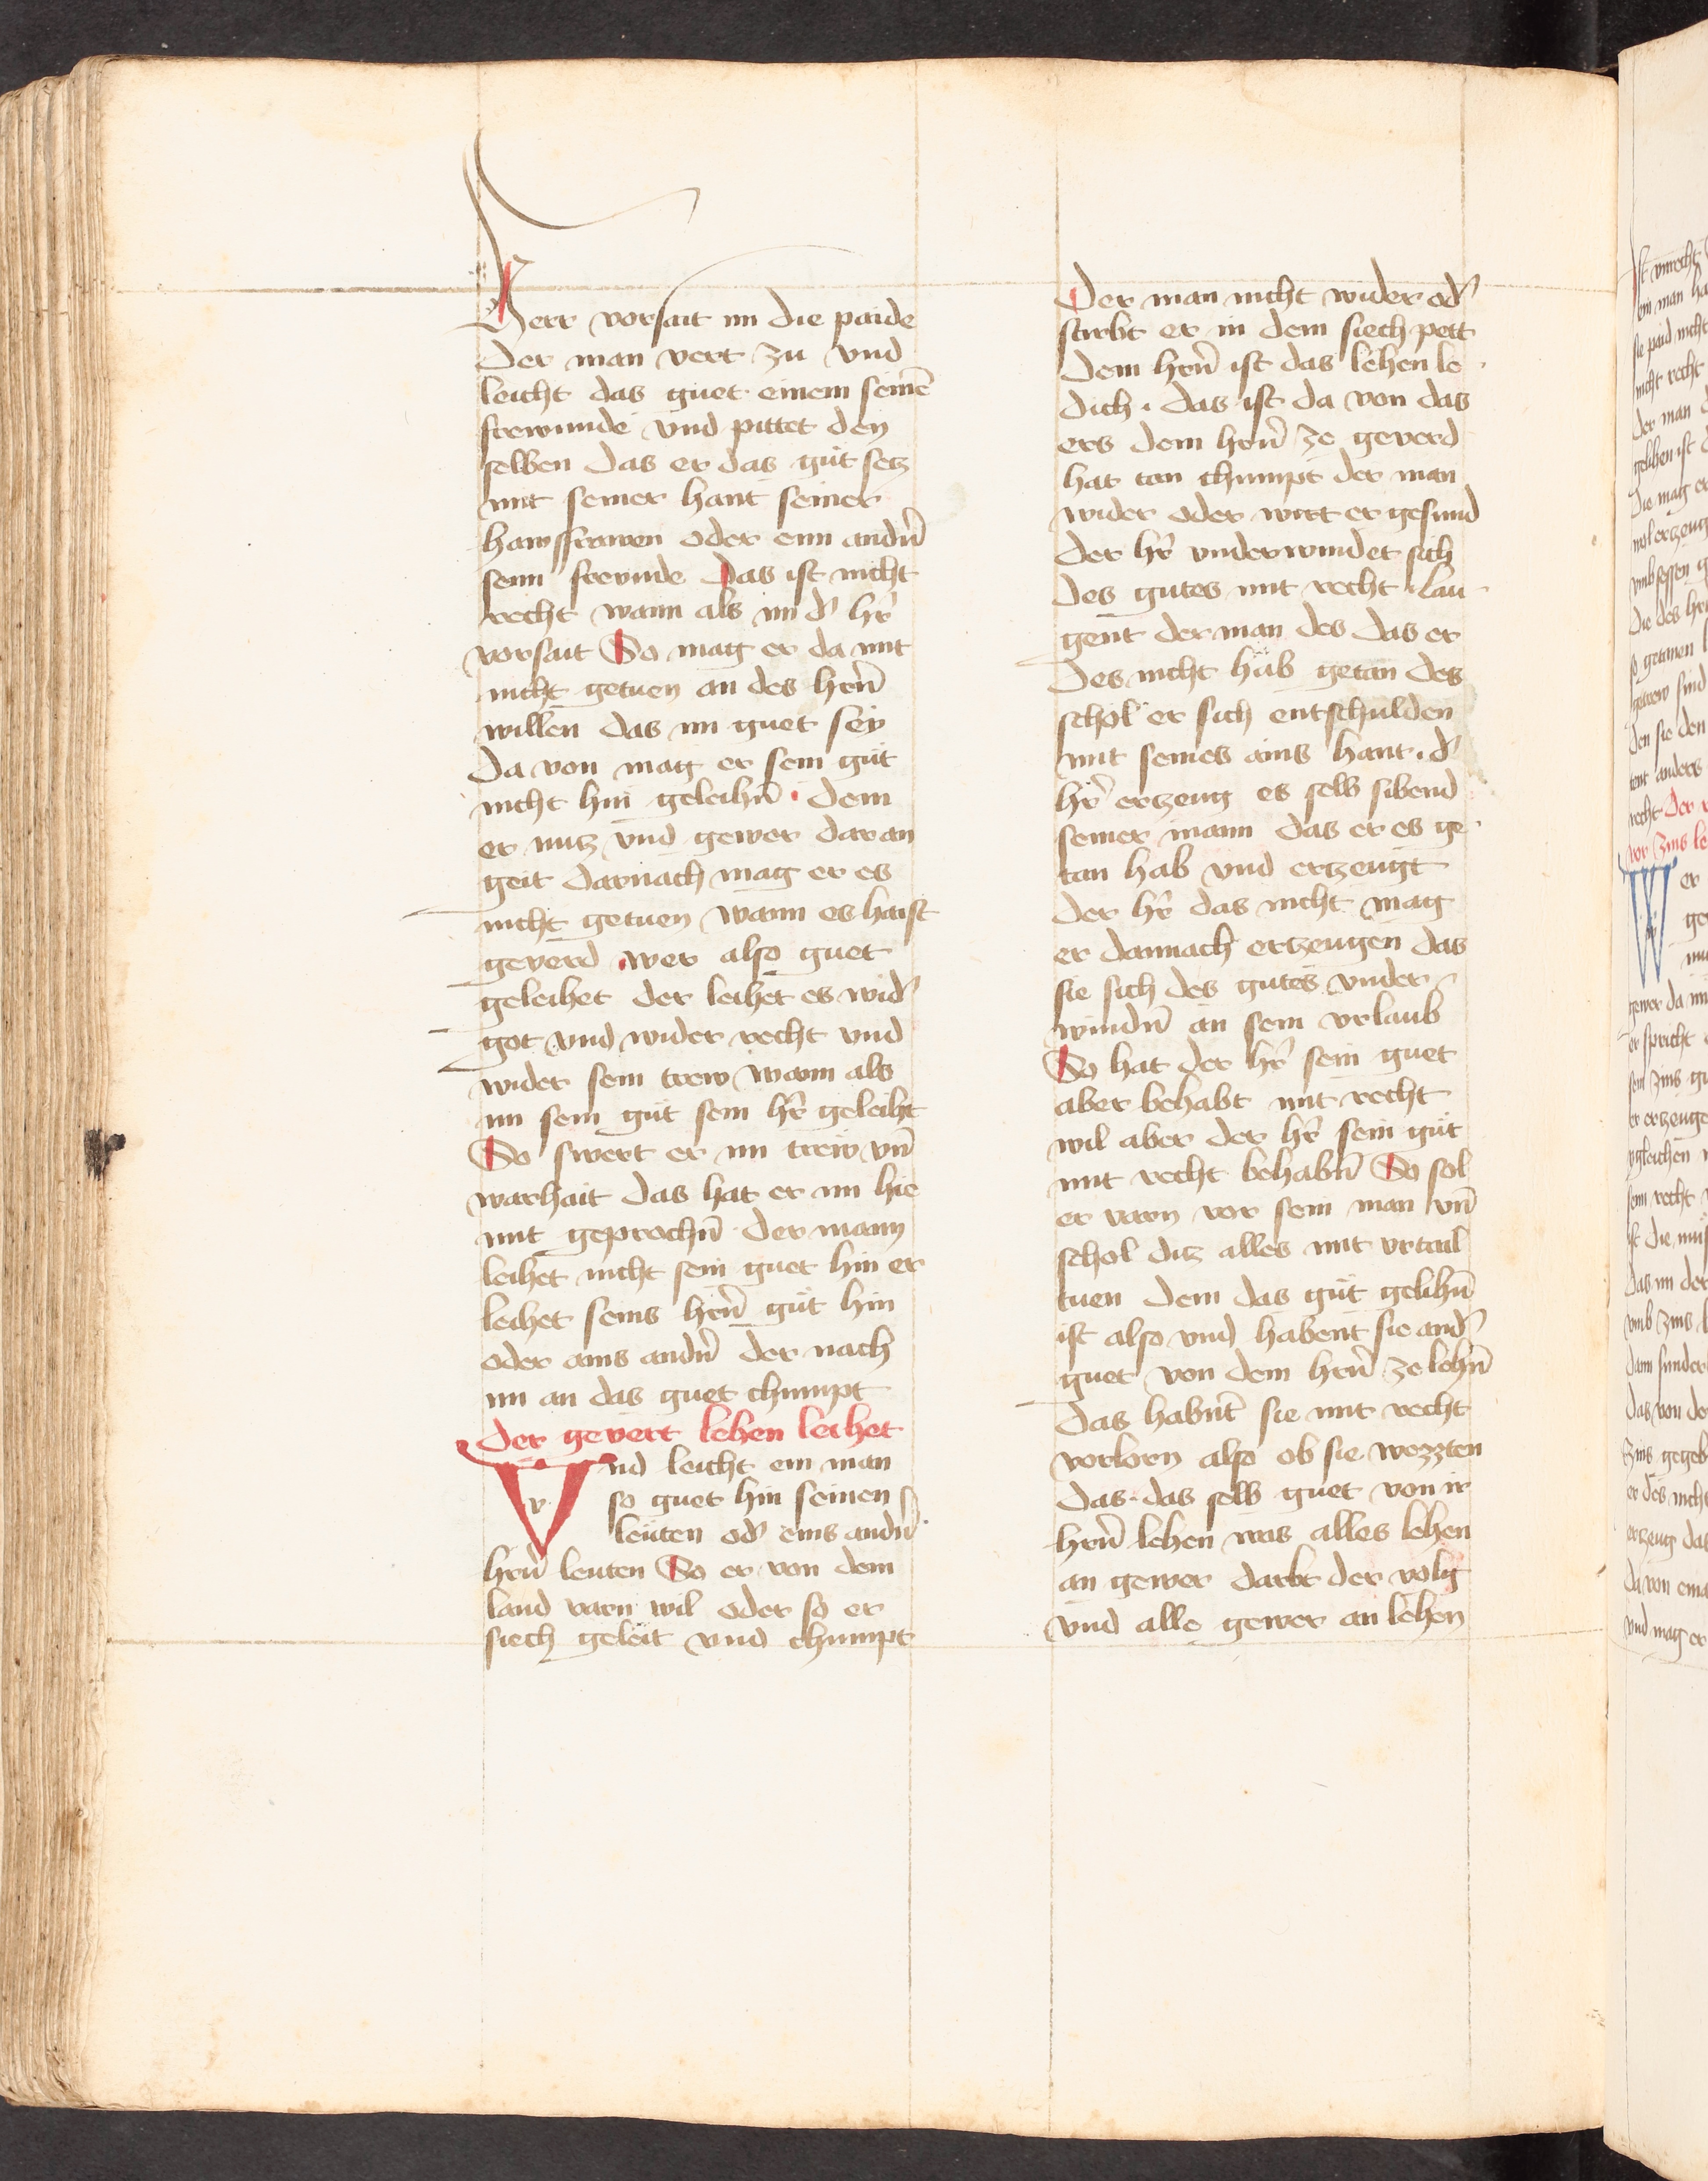 Herr vorsait im die paide
der man vert zu vnd
leicht das guet einem seinē
frewnnde vnd pittet den
selben das er das güt setz
mit seiner hant seiner
hawsfrawen oder enn andn̄
senn frevnde Das ist nicht
recht wann als im d' hr̄
vorsait So mag er da mit
nicht getuen an des hrn̄
willen das im guet sey
Da von mag er sein güt
nicht hin geleihn̄ . dem
er nutz vnd gewer dar an
geit darnach mag er es
nicht getuen wann es haist
geverd . wer also guet
geleihet der leihet es wid'
got vnd wider recht vnd
wider sein trew wann als
im sein güt sein hr̄ geleiht
So swert er im trew vn̄
warhait das hat er im hie
mit geprochn̄ der mann
leihet nicht sein guet hin er
leihet seins hrn̄ güt hin
oder ains andn̄ der nach
im an das guet chumpt
Der gevert lehen leihet
Vnd leicht ein man
so guet hin seinen
leüten od' eins andn̄
hrn̄ leuten So er von dem
land varn wil oder so er
siech geleit vnd chumpt
Der man nicht wider od'
stirbt er in dem siech pett
dem hrn̄ ist das lehen le
dich . das ist da von das
ers dem hrn̄ ze geverd
hat tan chumpt der man
wider oder wirt er gesund
der hr̄ vnderwindet sich
des gutes mit recht . lau
gent der man des das er
des nicht häb getan des
schol er sich entschulden
mit seines ains hant . d'
hr̄ ertzeug es selb sibend
seiner mann das er es ge
tan hab vnd ertzeugt
der hr̄ das nicht mag
er dannach ertzeugen das
sie sich des gutes vnder
windn̄ an sein vrlaub
So hat der hr̄ sein guet
aber behabt mit recht
wil aber der hr̄ sein güt
mit recht behabn̄ So sol
er varn vor sein man vn̄
schol ditz alles mit vrtail
tuen dem das güt gelihn̄
ist also vnd habent sie and'
guet von dem hrn̄ ze lehn̄
das habnt sie mit recht
vorlorn also ob sie wezzten
das . das selb guet von ir
hrn̄ lehen was alles lehen
an gewer darbt der volg
vnd alle gewer an lehen